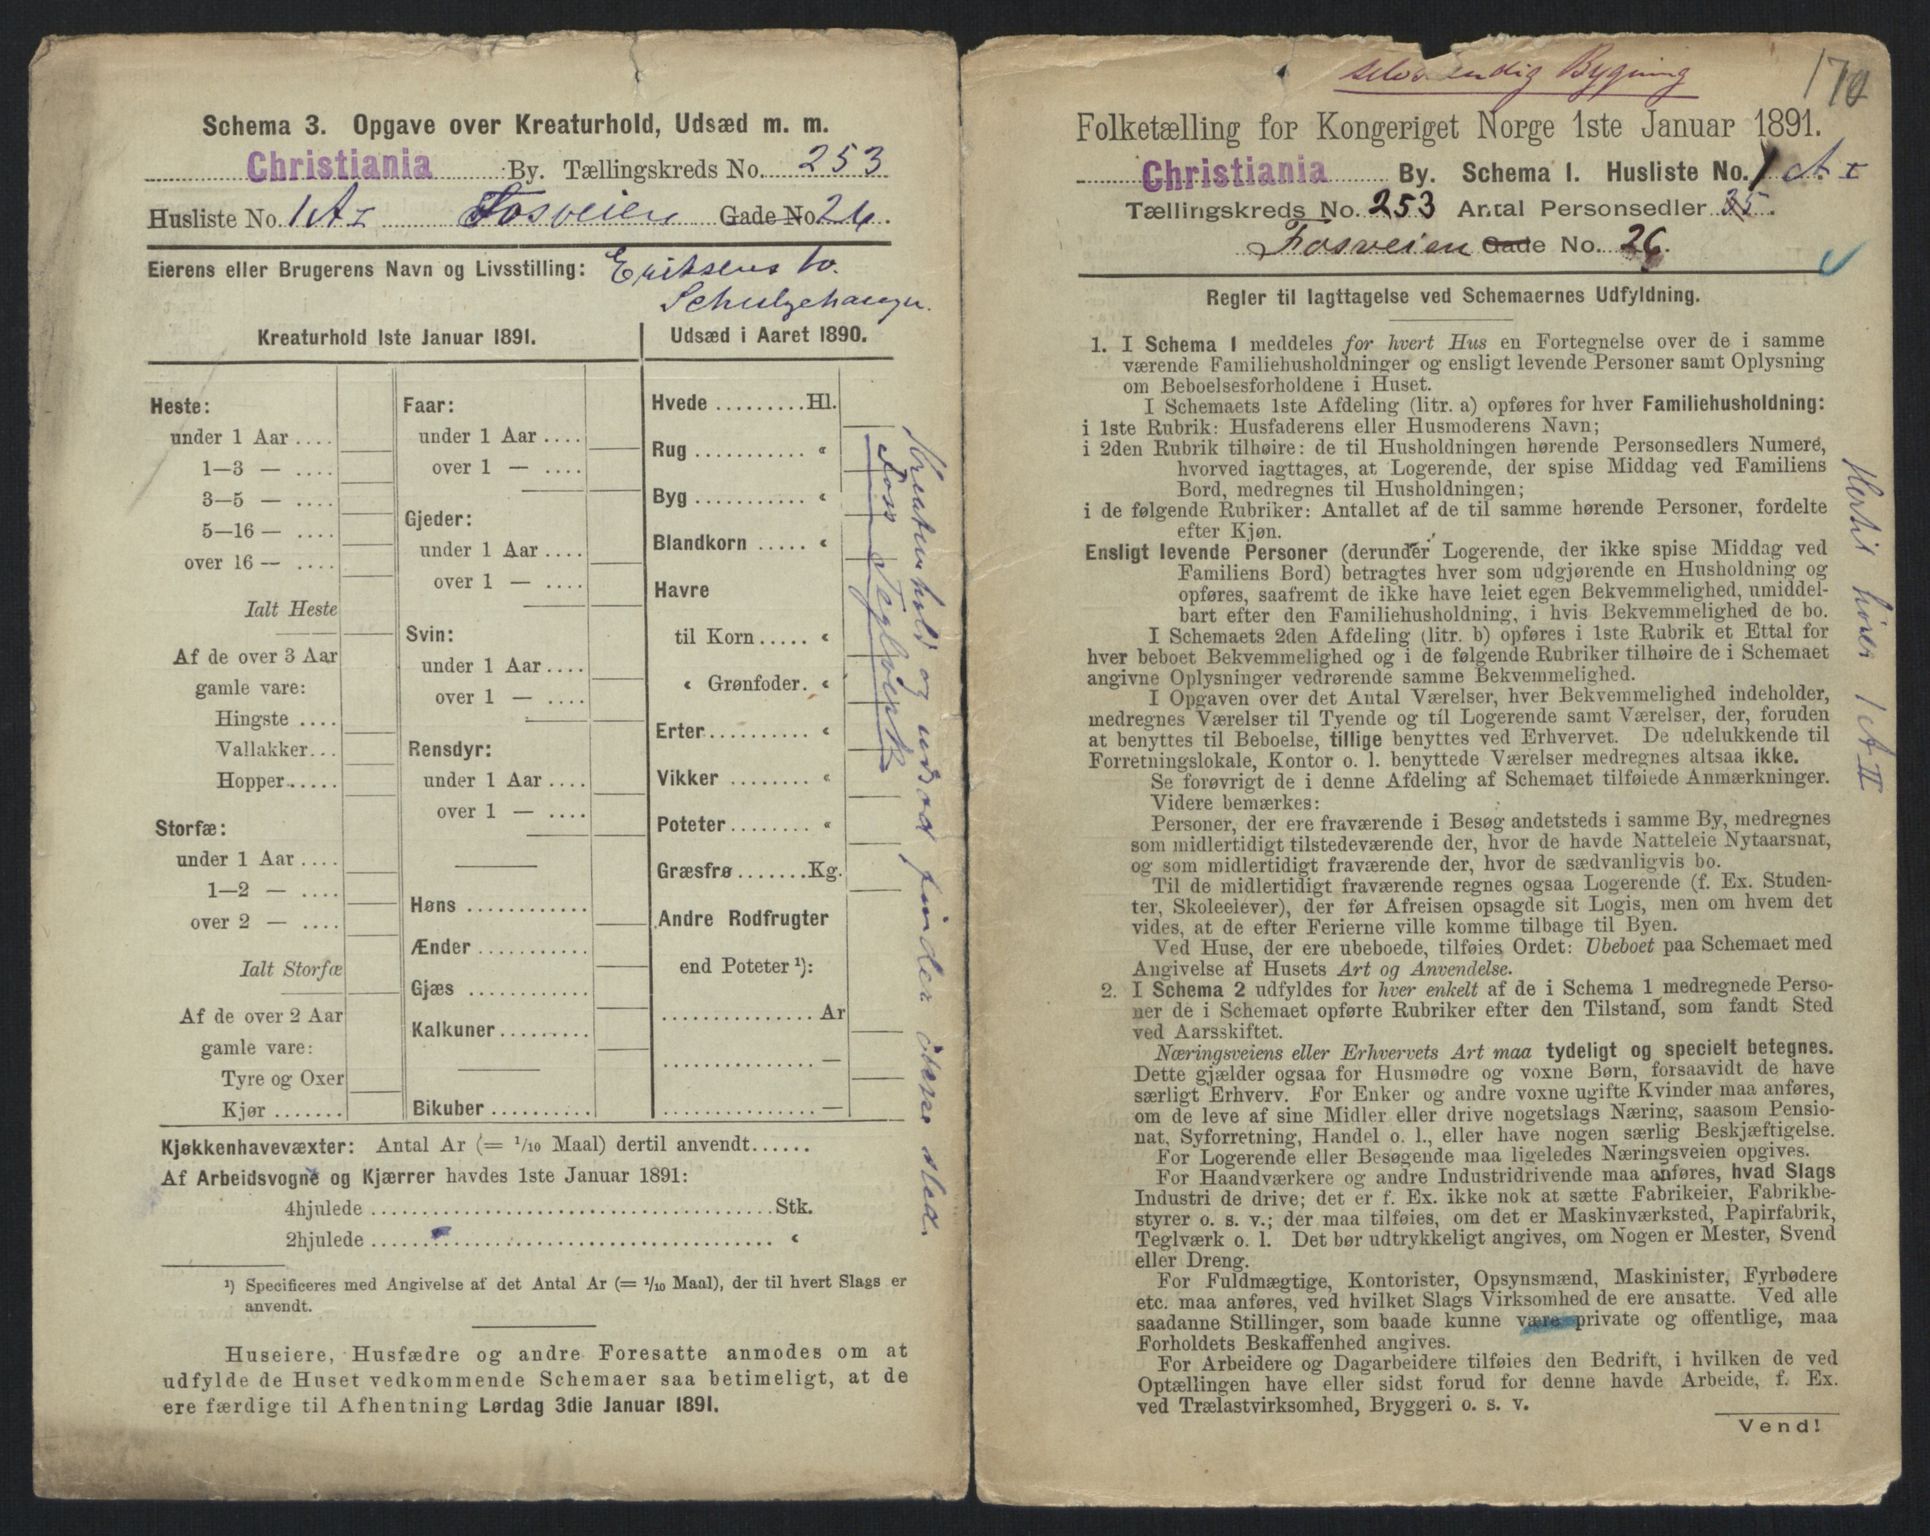 Schema 3. Opgave over Kreaturhold, Udsæd m. m.
Christiania By. Tællingskreds No. 253
Husliste No. 1 A I Fosveien Gade No. 26.
Eierens eller Brugerens Navn og Livsstilling: Eriksens bo.
Kreaturhold 1ste Januar 1891.
Udsæd i Aaret 1890.
Heste:
under 1 Aar ....
1—3 — ....
3—5 — ....
5—16 — ....
over 16 — ....
Ialt Heste
Af de over 3 Aar
gamle vare:
Hingste ....
Vallakker...
Hopper.....
Storfæ:
under 1 Aar ....
1—2 — ....
over 2 — ....
Ialt Storfæ
Af de over 2 Aar
gamle vare:
Tyre og Oxer
Kjør .......
Faar:
under 1 Aar ....
over 1 — ....
Gjeder:
under 1 Aar ....
over 1 — ....
Svin:
under 1 Aar ....
over 1 — ....
Rensdyr:
under 1 Aar ....
over 1 — ....
Høns ............
Ænder ...........
Gjæs ............
Kalkuner .........
Bikuber ..........
Hvede .........Hl.
Rug ........... «
Byg ........... «
Blandkorn ..... «
Havre
til Korn..... «
« Grønfoder. «
Erter.......... «
Vikker ........ «
Poteter........ «
Græsfrø.......Kg.
Andre Rodfrugter
end Poteter ¹):
............... Ar
............... —
............... —
Foss Teglverk
Kreaturhold og udsæd finder ikke sted.
Kjøkkenhavevæxter: Antal Ar (= 1/10 Maal) dertil anvendt......
Af Arbeidsvogne og Kjærrer havdes 1ste Januar 1891:
4hjulede ........................................ Stk.
2hjulede ........................................ «
¹) Specificeres med Angivelse af det Antal Ar (= 1/10 Maal), der til hvert Slags er
anvendt.
Huseiere, Husfædre og andre Foresatte anmodes om at
udfylde de Huset vedkommende Schemaer saa betimeligt, at de
ere færdige til Afhentning Lørdag 3die Januar 1891.
selvstændig Bygning
170
Folketælling for Kongeriget Norge 1ste Januar 1891.
Christiania By. Schema 1. Husliste No. 1 A I
Tællingskreds No. 253 Antal Personsedler 35.
Fosveien Gade No. 26.
Regler til Iagttagelse ved Schemaernes Udfyldning.
1. I Schema 1 meddeles for hvert Hus en Fortegnelse over de i samme
værende Familiehusholdninger og ensligt levende Personer samt Oplysning
om Beboelsesforholdene i Huset.
I Schemaets 1ste Afdeling (litr. a) opføres for hver Familiehusholdning:
i 1ste Rubrik: Husfaderens eller Husmoderens Navn;
i 2den Rubrik tilhøire: de til Husholdningen hørende Personsedlers Numere,
hvorved iagttages, at Logerende, der spise Middag ved Familiens
Bord, medregnes til Husholdningen;
i de følgende Rubriker: Antallet af de til samme hørende Personer, fordelte
efter Kjøn.
Ensligt levende Personer (derunder Logerende, der ikke spise Middag ved
Familiens Bord) betragtes hver som udgjørende en Husholdning og
opføres, saafremt de ikke have leiet egen Bekvemmelighed, umiddel-
bart efter den Familiehusholdning, i hvis Bekvemmelighed de bo.
I Schemaets 2den Afdeling (litr. b) opføres i 1ste Rubrik et Ettal for
hver beboet Bekvemmelighed og i de følgende Rubriker tilhøire de i Schemaet
angivne Oplysninger vedrørende samme Bekvemmelighed.
I Opgaven over det Antal Værelser, hver Bekvemmelighed indeholder,
medregnes Værelser til Tyende og til Logerende samt Værelser, der, foruden
at benyttes til Beboelse, tillige benyttes ved Erhvervet. De udelukkende til
Forretningslokale, Kontor o. l. benyttede Værelser medregnes altsaa ikke.
Se forøvrigt de i denne Afdeling af Schemaet tilføiede Anmærkninger.
Videre bemærkes:
Personer, der ere fraværende i Besøg andetsteds i samme By, medregnes
som midlertidigt tilstedeværende der, hvor de havde Natteleie Nytaarsnat,
og som midlertidigt fraværende der, hvor de sædvanligvis bo.
Til de midlertidigt fraværende regnes ogsaa Logerende (f. Ex. Studen-
ter, Skoleelever), der før Afreisen opsagde sit Logis, men om hvem det
vides, at de efter Ferierne ville komme tilbage til Byen.
Ved Huse, der ere ubeboede, tilføies Ordet: Ubeboet paa Schemaet med
Angivelse af Husets Art og Anvendelse.
2. I Schema 2 udfyldes for hver enkelt af de i Schema 1 medregnede Perso-
ner de i Schemaet opførte Rubriker efter den Tilstand, som fandt Sted
ved Aarsskiftet.
Næringsveiens eller Erhvervets Art maa tydeligt og specielt betegnes.
Dette gjælder ogsaa for Husmødre og voxne Børn, forsaavidt de have
særligt Erhverv. For Enker og andre voxne ugifte Kvinder maa anføres,
om de leve af sine Midler eller drive nogetslags Næring, saasom Pensio-
nat, Syforretning, Handel o. l., eller have nogen særlig Beskjæftigelse.
For Logerende eller Besøgende maa ligeledes Næringsveien opgives.
For Haandværkere og andre Industridrivende maa anføres, hvad Slags
Industri de drive; det er f. Ex. ikke nok at sætte Fabrikeier, Fabrikbe-
styrer o. s. v.; der maa tilføies, om det er Maskinværksted, Papirfabrik,
Teglværk o. l. Det bør udtrykkeligt angives, om Nogen er Mester, Svend
eller Dreng.
For Fuldmægtige, Kontorister, Opsynsmænd, Maskinister, Fyrbødere
etc. maa anføres, ved hvilket Slags Virksomhed de ere ansatte. Ved alle
saadanne Stillinger, som baade kunne være private og offentlige, maa
Forholdets Beskaffenhed angives.
For Arbeidere og Dagarbeidere tilføies den Bedrift, i hvilken de ved
Optællingen have eller sidst forud for denne havde Arbeide, f. Ex.
ved Trælastvirksomhed, Bryggeri o. s. v.
Vend!
Hertil hører 1 A II